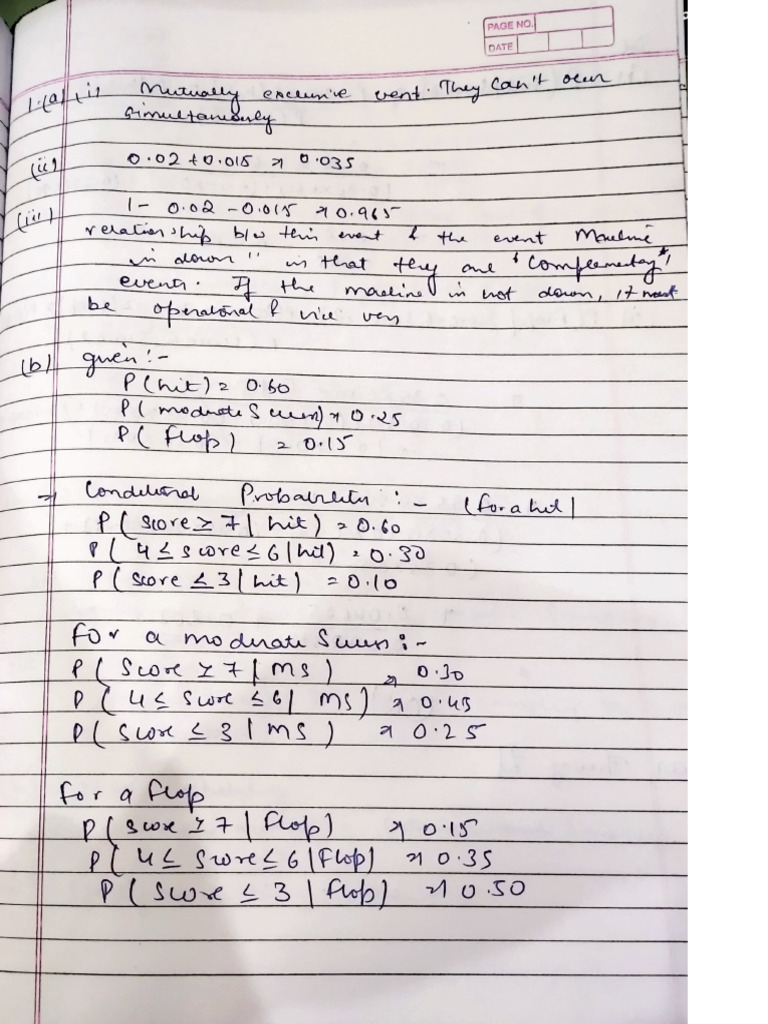 PAGE NO.
DATE
1.(a) (i) Mutually exclusive event. They can't occur
simultaneously
(ii) 0.02 + 0.015 = 0.035
(iii) 1 - 0.02 - 0.015 = 0.965
relationship b/w this event & the event Machine
is down" is that they are "Complementary"
events. If the machine is not down, it must
be operational & vice very
(b) given :-
P(hit) = 0.60
P(moderate Success) = 0.25
P(flop) = 0.15
→ Conditional Probability :- (for a hit)
P(score ≥ 7 | hit) = 0.60
P(4 ≤ score ≤ 6 | hit) = 0.30
P(score ≤ 3 | hit) = 0.10
for a moderate Success :-
P(Score ≥ 7 | MS) = 0.30
P(4 ≤ Score ≤ 6 | MS) = 0.45
P(Score ≤ 3 | MS) = 0.25
for a flop
P(score ≥ 7 | flop) = 0.15
P(4 ≤ Score ≤ 6 | flop) = 0.35
P(Score ≤ 3 | flop) = 0.50